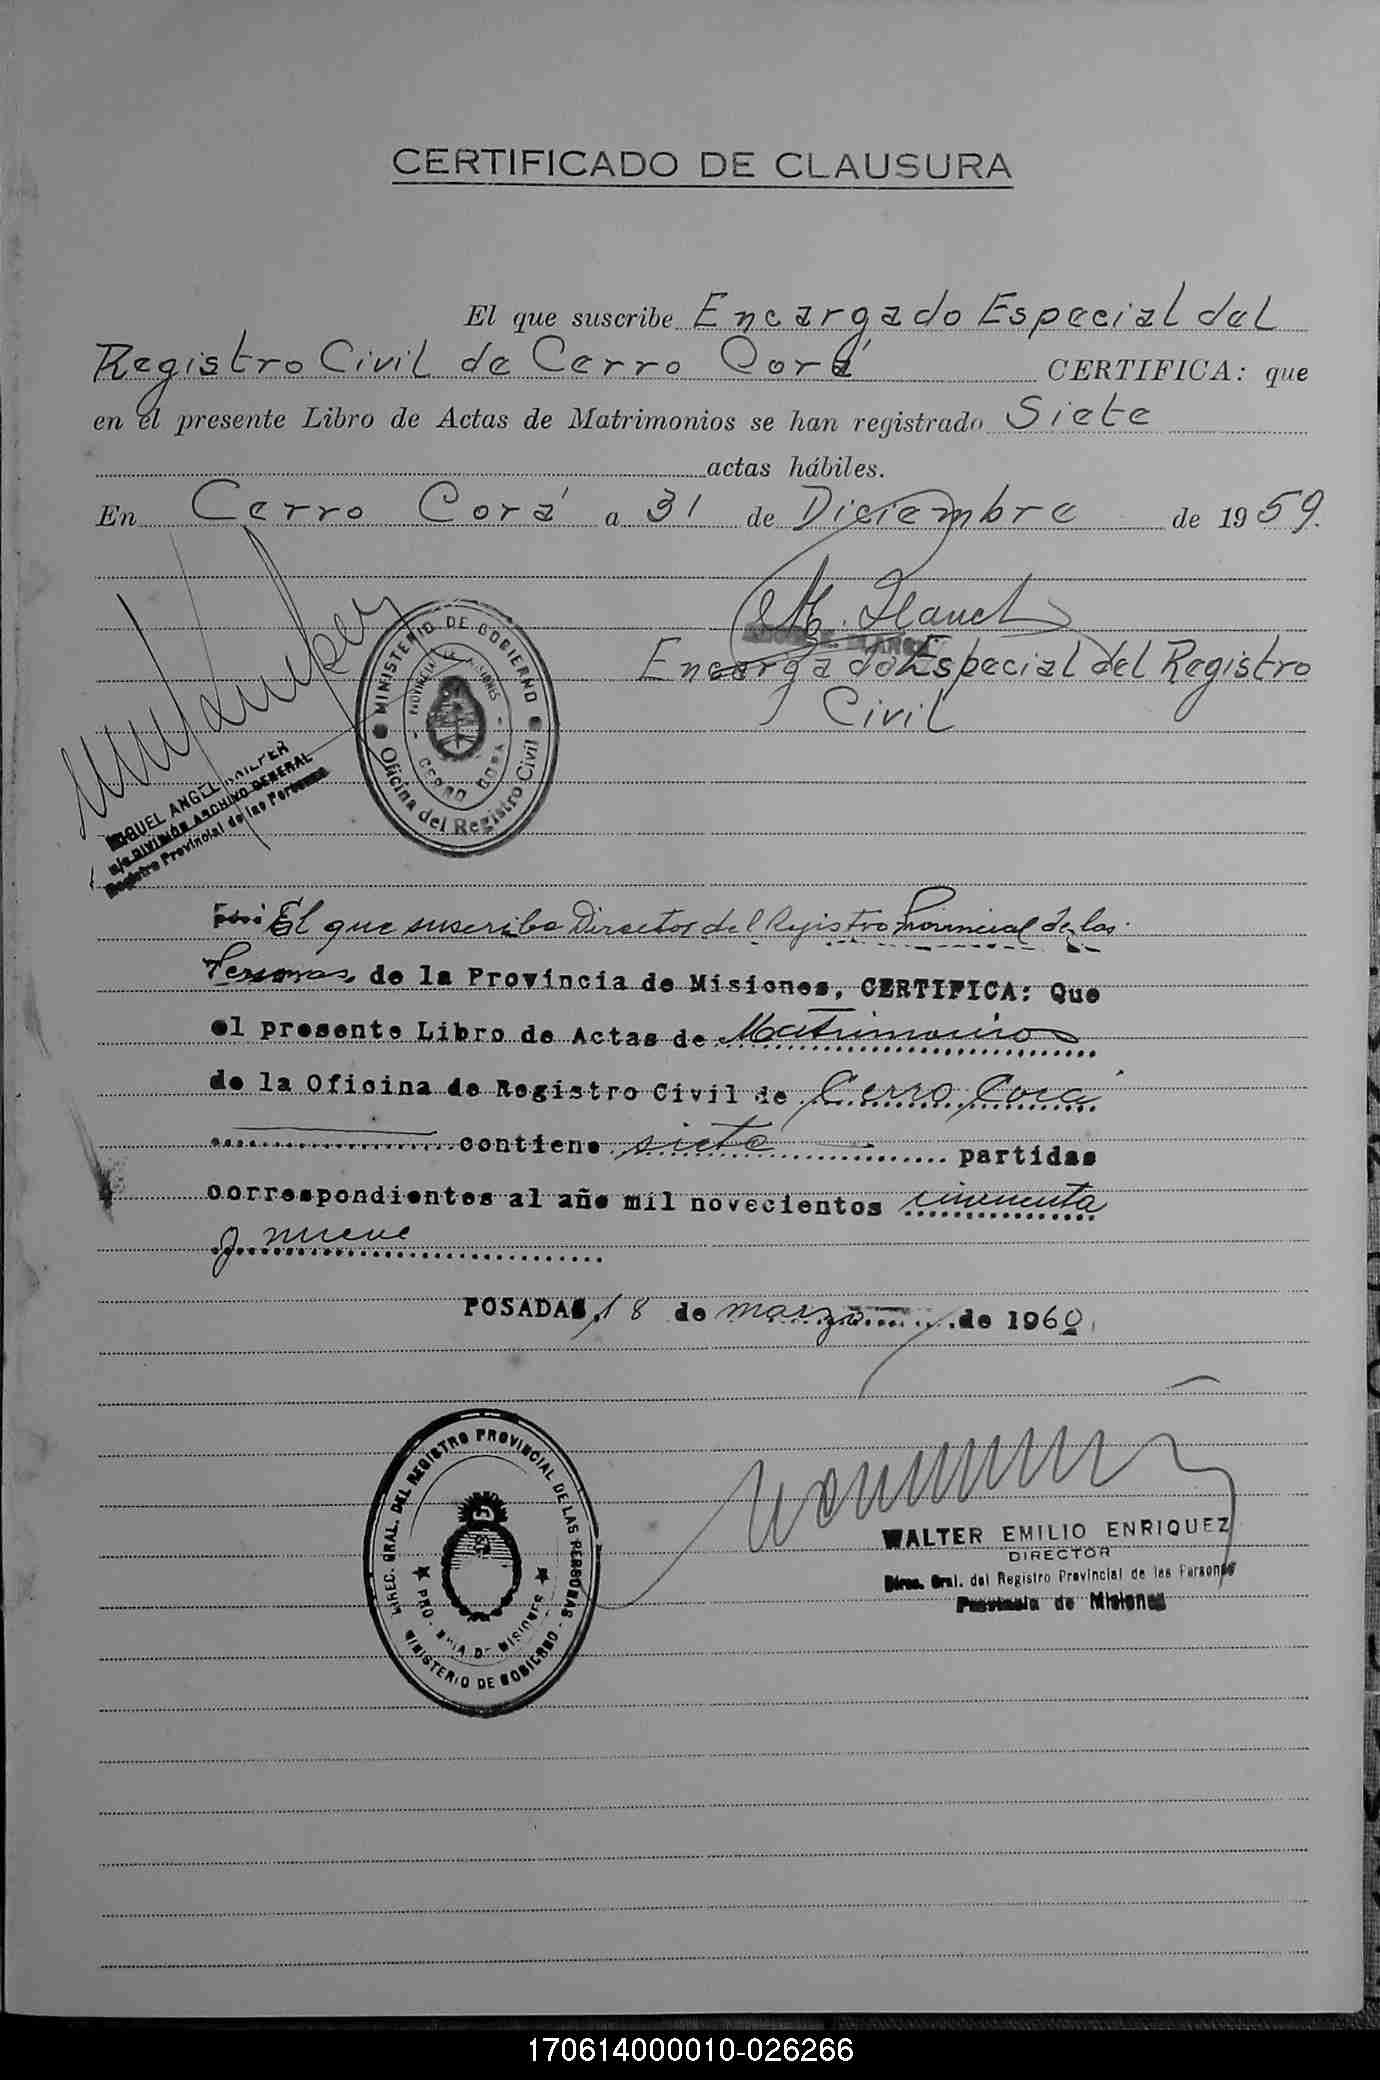 CERTIFICADO DE CLAUSURA
El que suscribe Encargado Especial del
Registro Civil de Cerro Corá CERTIFICA: que
en el presente Libro de Actas de Matrimonios se han registrado Siete
actas hábiles.
En Cerro Corá a 31 de Diciembre de 1959.
Encargado Especial del Registro
Civil
MINISTERIO DE GOBIERNO
PROVINCIA DE MISIONES
CERRO CORA
Oficina del Registro Civil
MIGUEL ANGEL
DIVISIÓN ARCHIVO GENERAL
Registro Provincial de las Personas
El que suscribe Director del Registro Provincial de las
Personas de la Provincia de Misiones, CERTIFICA: Que
el presente Libro de Actas de Matrimonios
de la Oficina de Registro Civil de Cerro Corá
contiene siete partidas
correspondientes al año mil novecientos cincuenta
y nueve
POSADAS, 18 de marzo de 1960.
DIREC. GRAL. DEL REGISTRO PROVINCIAL DE LAS PERSONAS
PROVINCIA DE MISIONES
MINISTERIO DE GOBIERNO
WALTER EMILIO ENRIQUEZ
DIRECTOR
Direc. Gral. del Registro Provincial de las Personas
Provincia de Misiones
170614000010-026266